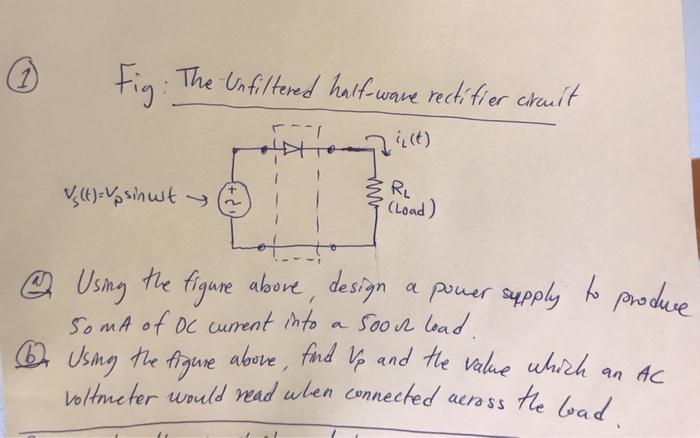 1
Fig: The Unfiltered half-wave rectifier circuit
iL(t)
Vs(t)=Vp sinωt →
+
~
-
RL
(Load)
a) Using the figure above, design a power supply to produce
50 mA of DC current into a 500Ω load.
b) Using the figure above, find Vp and the value which an AC
voltmeter would read when connected across the load.